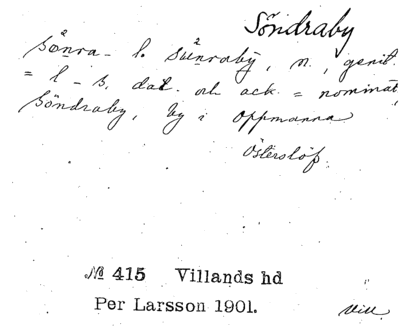 Söndraby
sånra- l. sunraby, n., genit.
= l - s. dat. och ack. = nominat,
Söndraby, by i Oppmanna
Österslöf.
№ 415 Villands hd
Per Larsson 1901.
Vill.